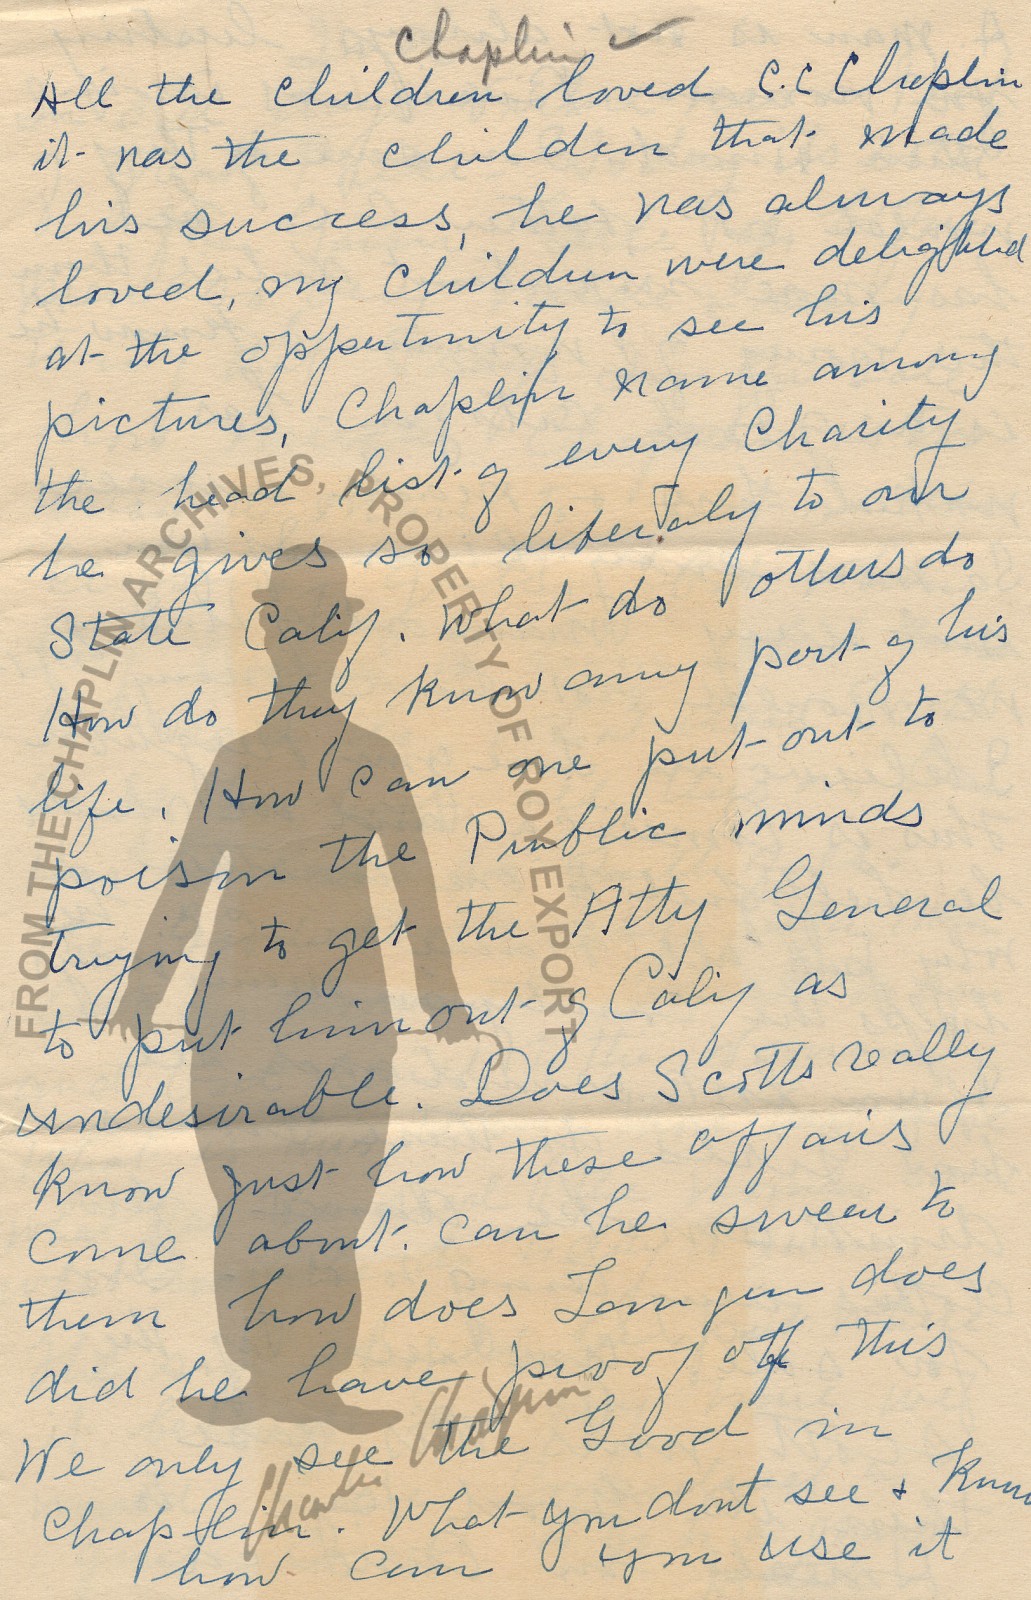 Chaplin ✓
All the children loved C.C Chaplin
it was the children that made
his success, he was always
loved, my children were delighted
at the oppertunity to see his
pictures, Chaplin name among
the head list of every Charity
he gives so liberaly to our
State Calif. What do others do
How do they know any part of his
life. How can one put out to
poison the Public minds
trying to get the Atty General
to put him out of Calif as
undesirable. Does Scotts really
know just how these affairs
come about. can he swear to
them how does does
did he have proof of this
We only see the Good in
Chaplin. What you dont see + Know
how can you use it
FROM THE CHAPLIN ARCHIVES, PROPERTY OF ROY EXPORT
Charlie Chaplin